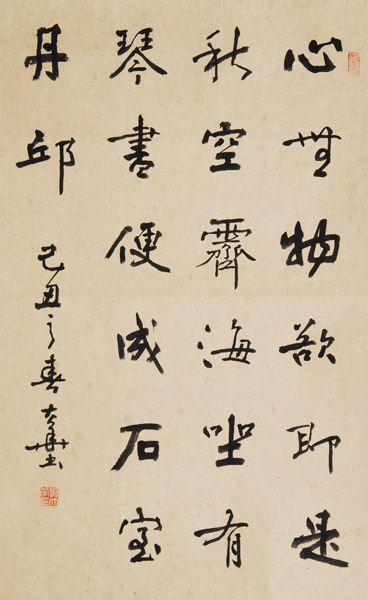 心無物欲即是
秋空霽海坐有
琴書便成石室
丹邱
己丑之春大華書